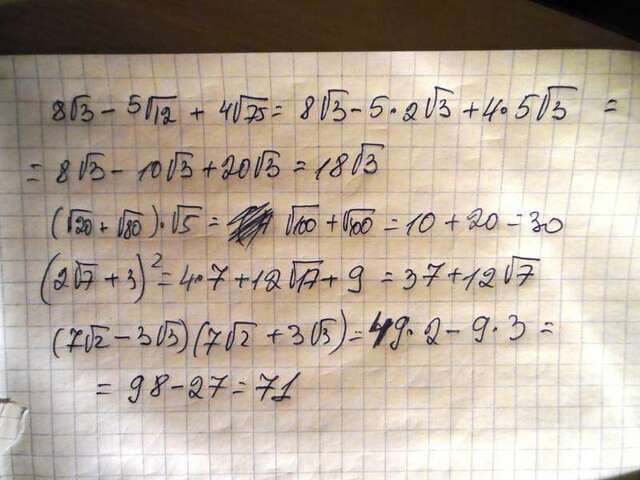 8√3 − 5√12 + 4√75 = 8√3 − 5·2√3 + 4·5√3 =
= 8√3 − 10√3 + 20√3 = 18√3
(√20 + √80)·√5 = √100 + √400 = 10 + 20 = 30
(2√7 + 3)² = 4·7 + 12√17 + 9 = 37 + 12√7
(7√2 − 3√3)(7√2 + 3√3) = 49·2 − 9·3 =
= 98 − 27 = 71